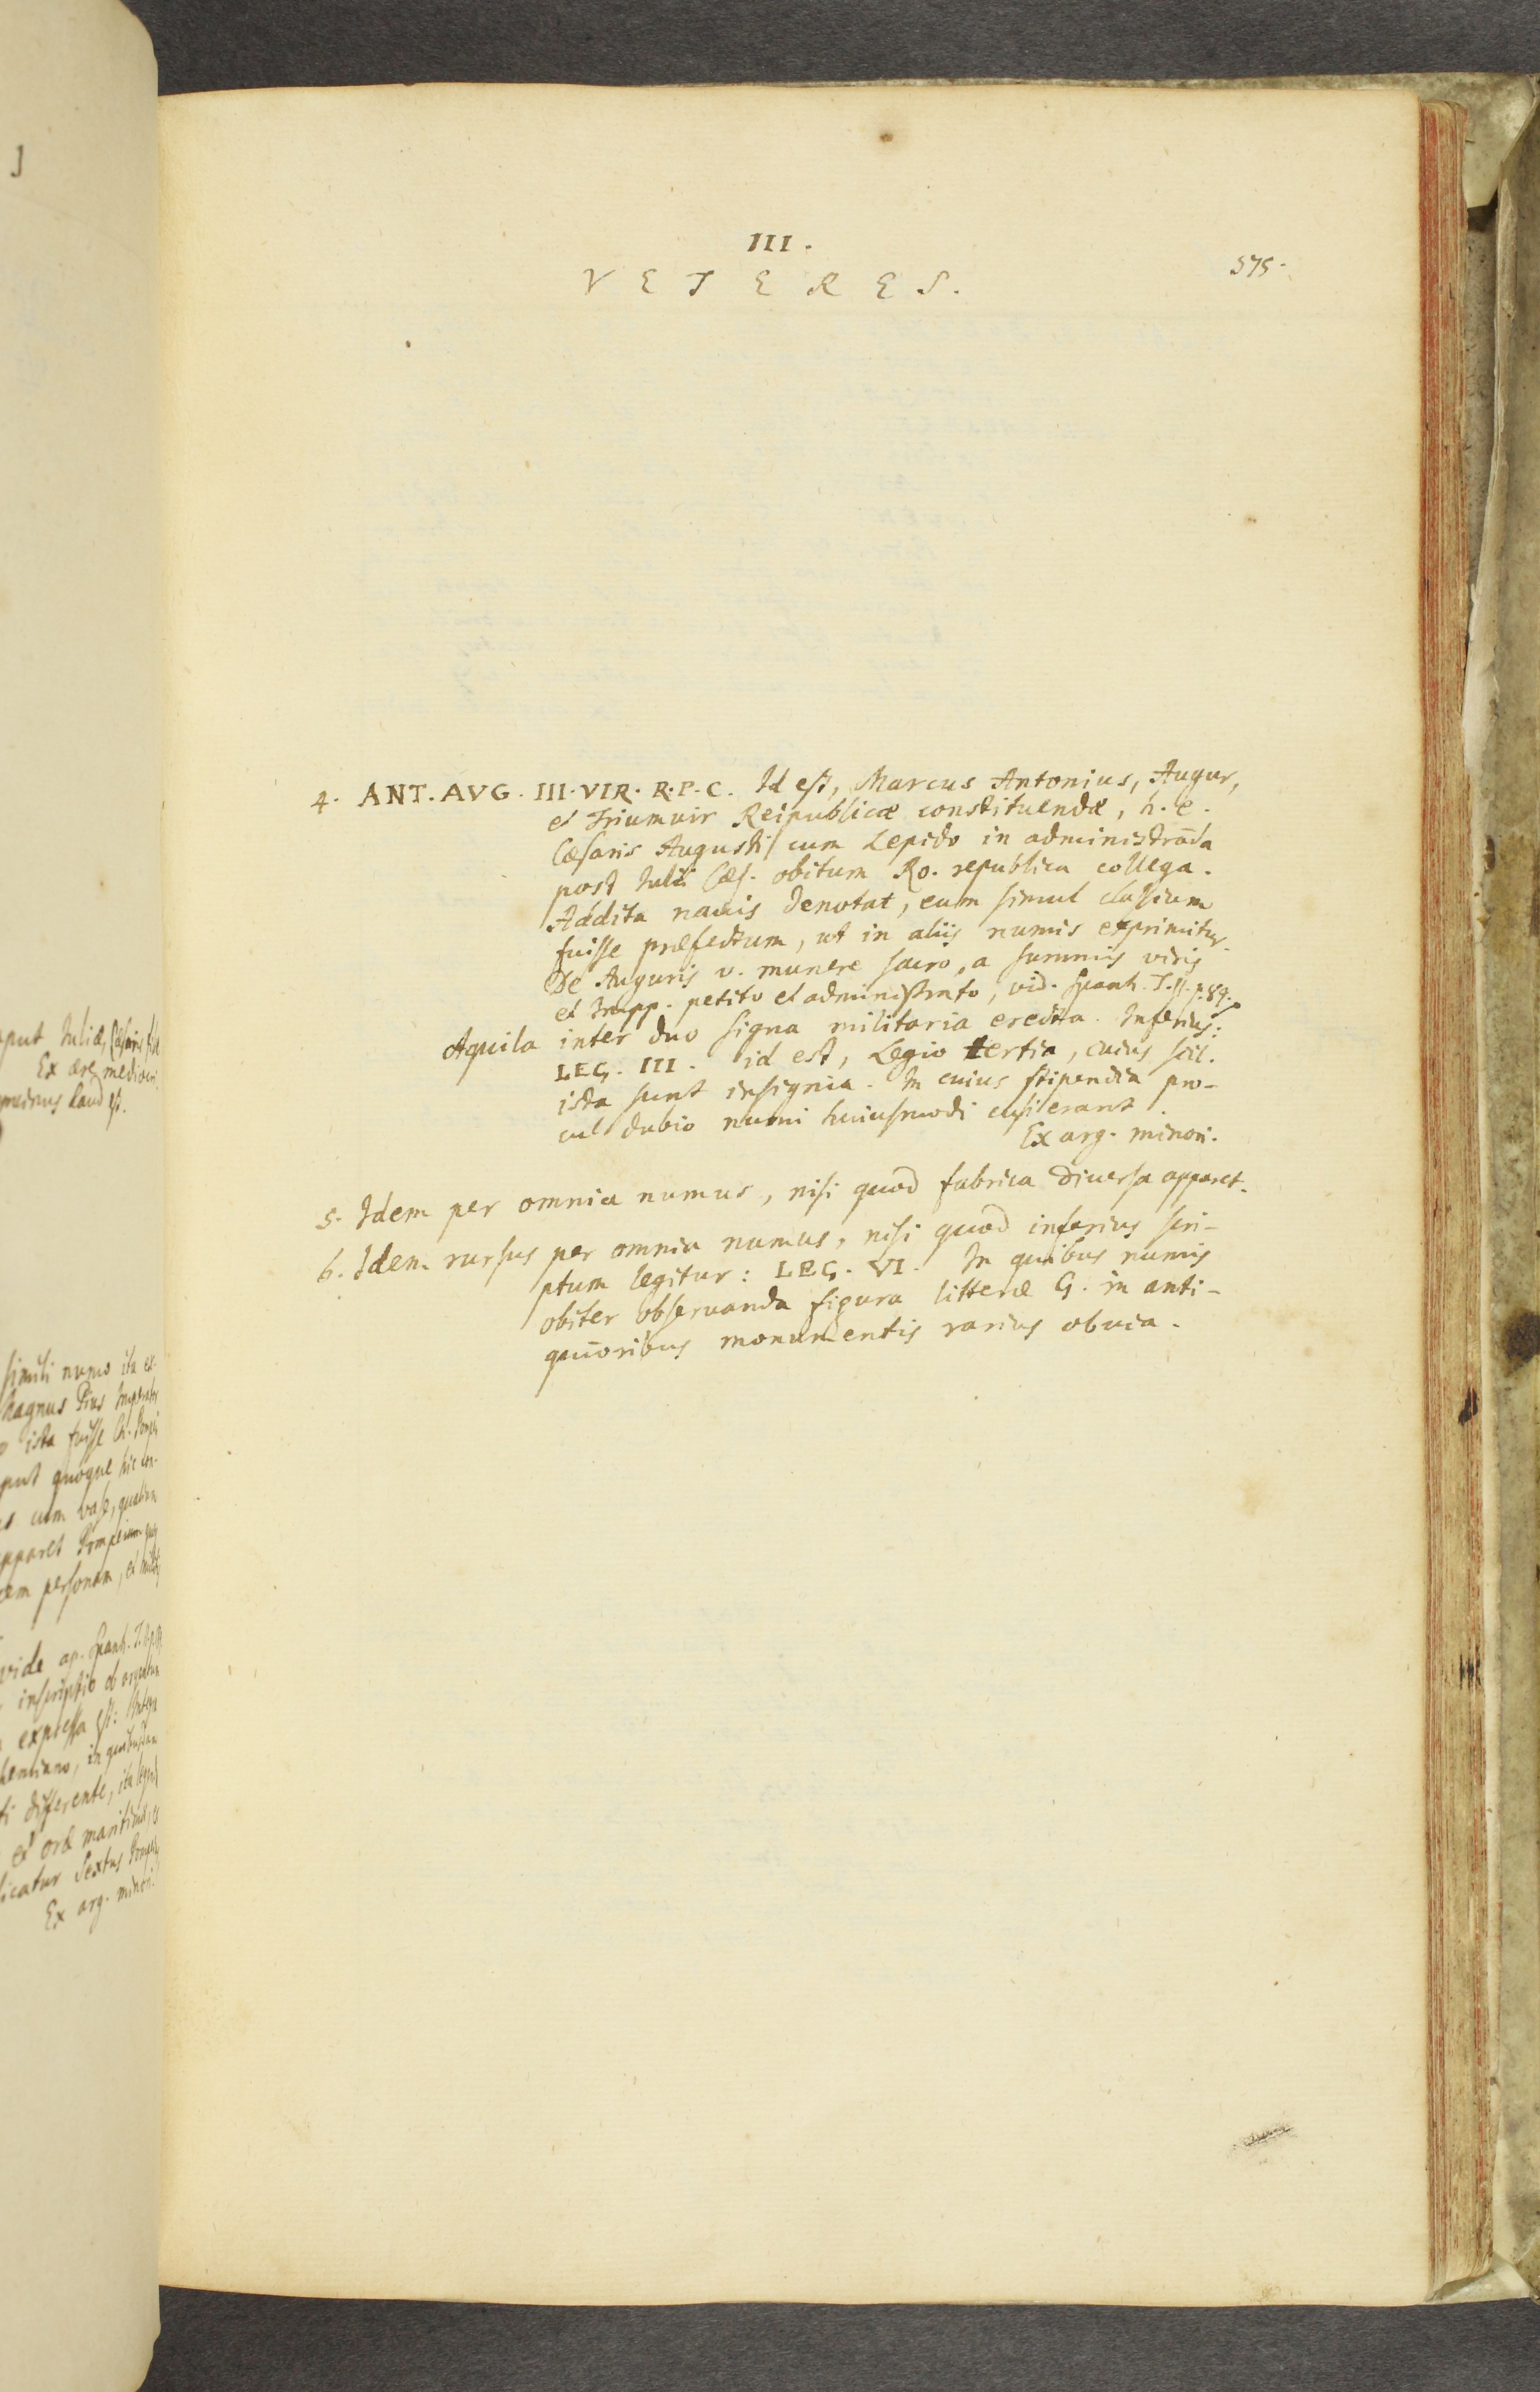 III.
VETERES.
575.
4. ANT. AVG. III. VIR. R. P. C. Id est, Marcus Antonius, Augur,
et Triumuir Reipublicæ constituendæ, h. e.
Cæsaris Augusti cum Lepido in administrāda
post Iulii Cæs. obitum Ro. republica collega.
Addita nauis denotat, eum simul classium
fuisse præfectum, ut in aliis numis exprimitur.
De Auguris v. munere sacro, a summis viris
et Impp. petito et administrato, vid. Spanh. T. II. p. 89.
Aquila inter duo signa militaria erecta. Inferius:
LEG. III. id est, Legio tertia, cuius scil.
ista sunt insignia. In cuius stipendia pro-
cul dubio numi huiusmodi cusi erant.
Ex arg. minori.
5. Idem per omnia numus, nisi quod fabrica diuersa apparet.
6. Idem rursus per omnia numus, nisi quod inferius scri-
ptum legitur: LEG. VI. In quibus numis
obiter obseruanda figura litteræ G. in anti-
quioribus monumentis rarius obuia.
J
Iuliæ, Cæsaris
Ex ære mediocri
haud est.
simili numo ita
Magnus Pius Imperator
ista fuisse
quoque hic
cum vase,
apparet Pompeium
personam, et
vide ap. Spanh.
inscriptio ob
expressa est:
in quibusdam
differente, ita
et oræ maritimæ,
Sextus
Ex arg. minori.